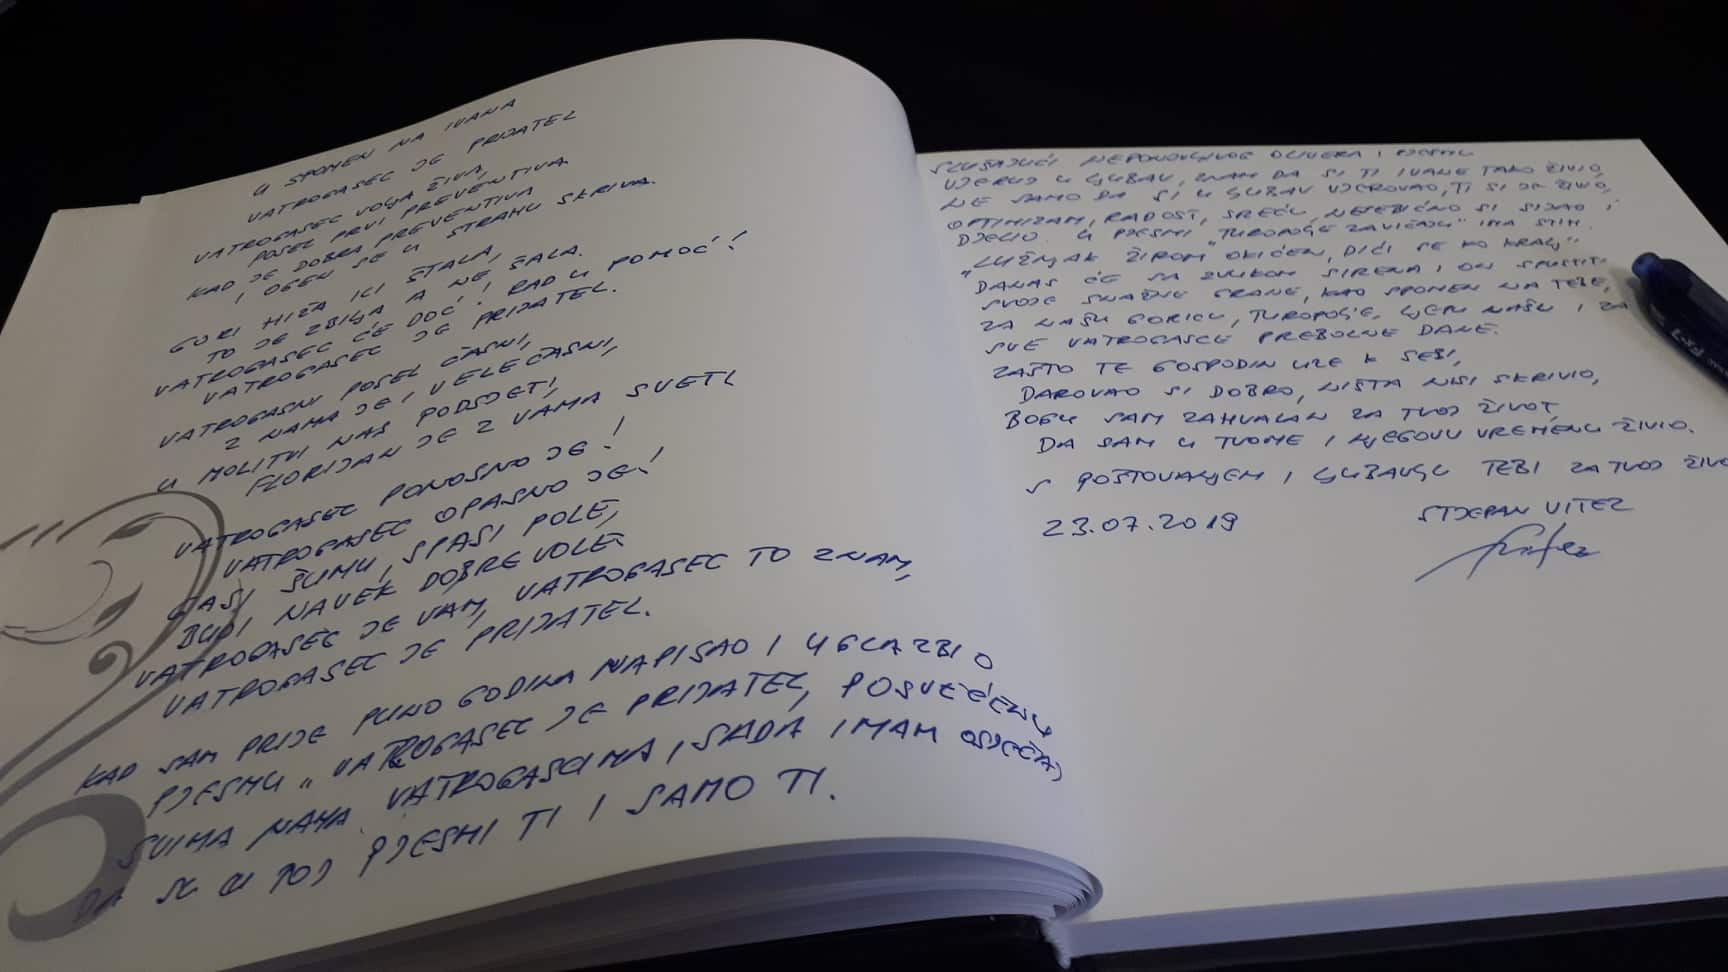 U SPOMEN NA IVANA
VATROGASEC JE PRIJATEL
VATROGASEC VOLJA ŽIVA,
POSEL PRVI PREVENTIVA
KAD JE DOBRA PREVENTIVA
I OGEN SE U STRAHU SKRIVA.
GORI HIŽA ILI ŠTALA,
TO JE ZBILJA A NE ŠALA.
VATROGASEC ĆE DOĆ' I RAD U POMOĆ!
VATROGASEC JE PRIJATEL.
VATROGASNI POSEL ČASNI,
Z NAMA JE I VELEČASNI,
U MOLITVI NAS PODSJETI,
FLORIJAN JE Z VAMA SVETI
VATROGASEC PONOSNO JE!
VATROGASEC OPASNO JE!
GASI ŠUMU, SPASI POLE,
BUDI NAVEK DOBRE VOLE
VATROGASEC JE VAM, VATROGASEC TO ZNAM,
VATROGASEC JE PRIJATEL.
KAD SAM PRIJE PUNO GODINA NAPISAO I UGLAZBIO
PJESMU "VATROGASEC JE PRIJATEL, POSVEĆENU
SVIMA NAMA VATROGASCIMA, SADA IMAM OSJEĆAJ
DA SI U TOJ PJESMI TI I SAMO TI.
SLUŠAJUĆI NEPONOVLJIVOG OLIVERA I PJESMU
VJERUJ U LJUBAV, ZNAM DA SI TI IVANE TAKO ŽIVIO,
NE SAMO DA SI U LJUBAV VJEROVAO, TI SI JE ŽIVIO,
OPTIMIZAM, RADOST, SREĆU, NESEBIČNO SI SIJAO I
DJELIO. U PJESMI "TUROPOLJE ZAVIČAJU" IMA STIH
"LUŽNJAK ŽIROM OKIĆEN, DIČI SE KO KRALJ":
DANAS ĆE SA ZVUKOM SIRENA I ON SPUSTITI
SVOJE SNAŽNE GRANE, KAO SPOMEN NA TEBE,
ZA NAŠU GORICU, TUROPOLJE, LIJEPU NAŠU I ZA
SVE VATROGASCE PREBOLNE DANE.
ZAŠTO TE GOSPODIN UZE K SEBI,
DAROVAO SI DOBRO, NIŠTA NISI SKRIVIO,
BOGU SAM ZAHVALAN ZA TVOJ ŽIVOT,
DA SAM U TVOME I NJEGOVU VREMENU ŽIVIO.
S POŠTOVANJEM I LJUBAVLJU TEBI ZA TVOJ
STJEPAN VITEZ
23.07.2019